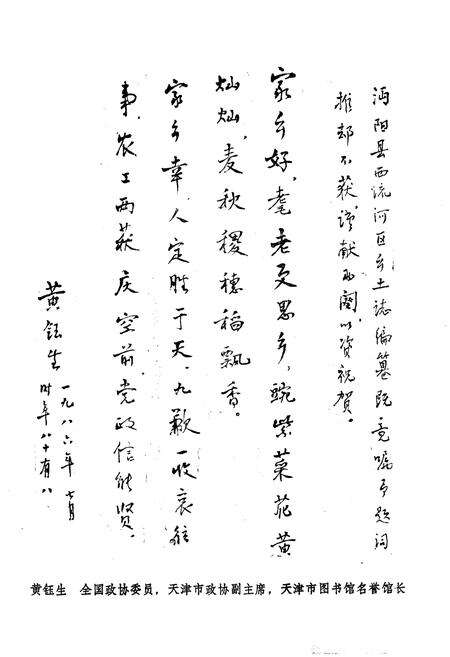 沔阳县西流河区乡土志编纂既竟嘱予题词
推却不获,谨献两阕以资祝贺。
家乡好,耄老更思乡,豌紫菜花黄
灿灿,麦秋稷穗稻飘香。
家乡幸,人定胜于天,九歉一收哀往
事,农工两获庆空前,党政信能贤。
黄钰生
一九八六年七月
时年八十有八
黄钰生 全国政协委员,天津市政协副主席,天津市图书馆名誉馆长